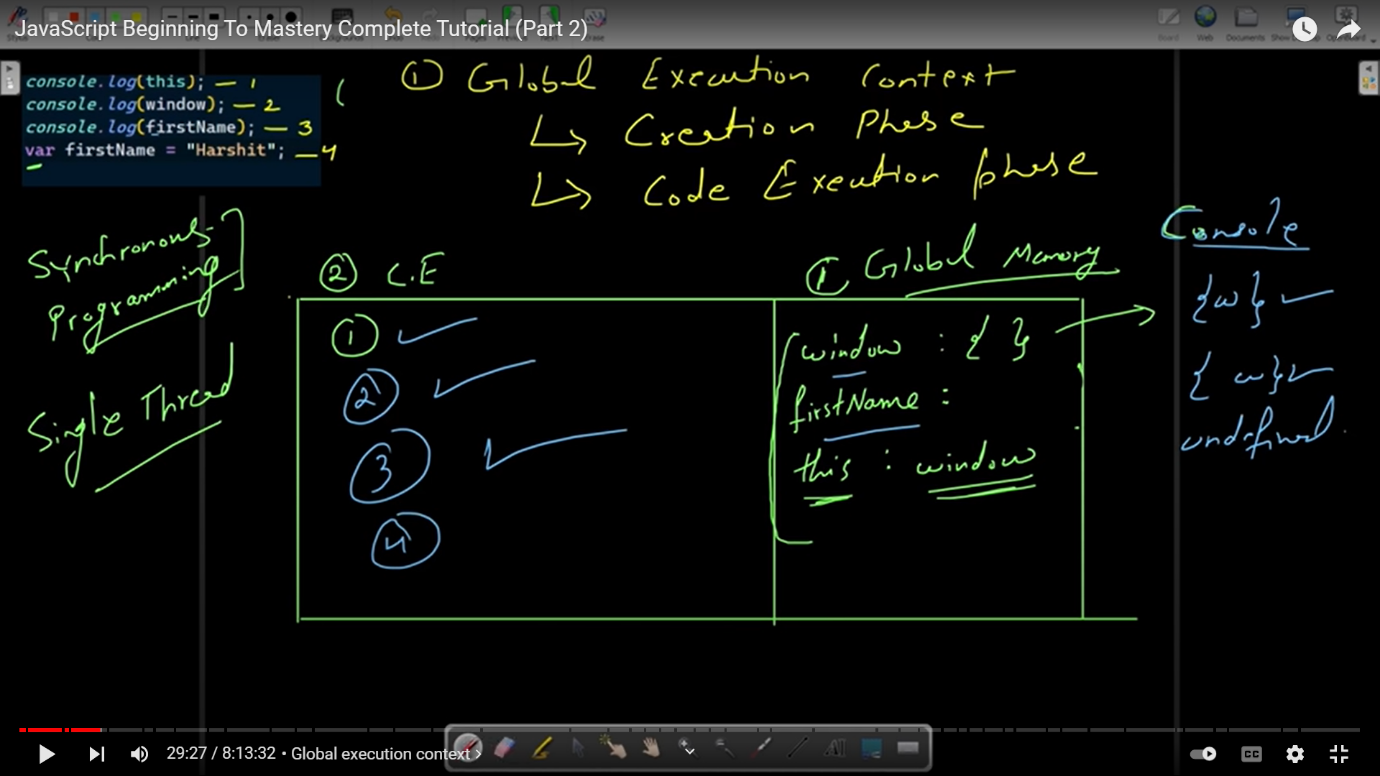 JavaScript Beginning To Mastery Complete Tutorial (Part 2)
console.log(this); — 1
console.log(window); — 2
console.log(firstName); — 3
var firstName = "Harshit"; — 4
① Global Execution Context
↳ Creation Phase
↳ Code Execution phase
Synchronous
Programming
Single Thread
② C.E
①
②
③
④
① Global Memory
window : { }
firstName :
this : window
Console
{w}
{w}
undefined
29:27 / 8:13:32 • Global execution context >
CC